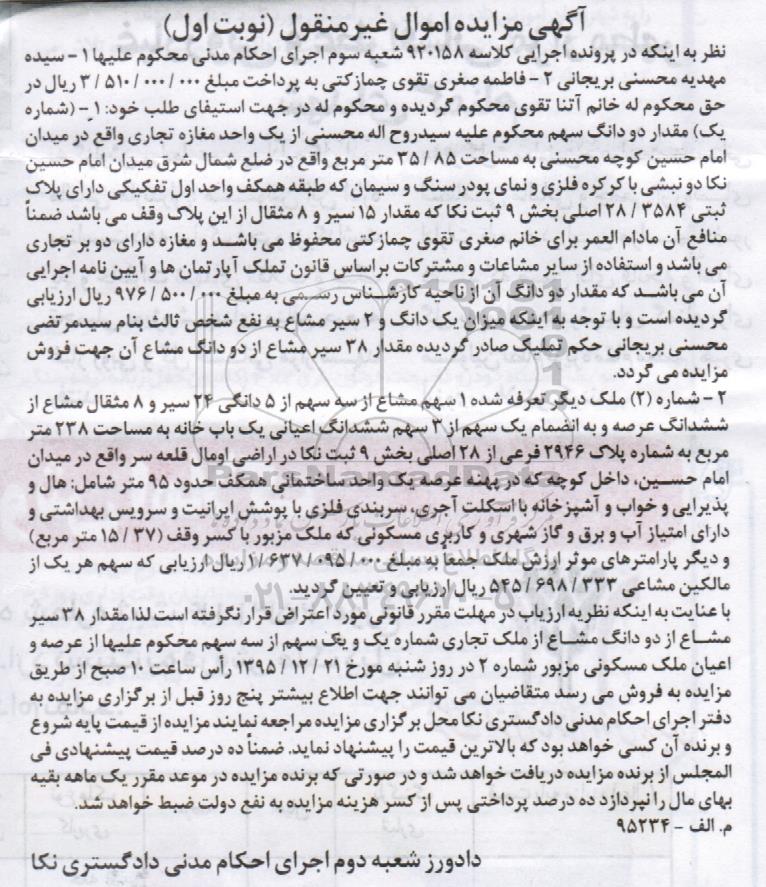 آگهی مزایده اموال غیر منقول (نوبت اول)
نظر به اینکه در پرونده اجرایی کلاسه ۹۲۰۱۵۸ شعبه سوم اجرای احکام مدنی محکوم علیها ۱ - سیده
مهدیه محسنی بریجانی ۲ - فاطمه صغری تقوی چمازکتی به پرداخت مبلغ ۳/۵۱۰/۰۰۰/۰۰۰ ریال در
حق محکوم له خانم آتنا تقوی محکوم گردیده و محکوم له در جهت استیفای طلب خود: ۱ - (شماره
یک) مقدار دو دانگ سهم محکوم علیه سیدروح اله محسنی از یک واحد مغازه تجاری واقع در میدان
امام حسین کوچه محسنی به مساحت ۳۵/۸۵ متر مربع واقع در ضلع شمال شرق میدان امام حسین
نکا دو نبشی با کرکره فلزی و نمای پودر سنگ و سیمان که طبقه همکف واحد اول تفکیکی دارای پلاک
ثبتی ۲۸/۳۵۸۴ اصلی بخش ۹ ثبت نکا که مقدار ۱۵ سیر و ۸ مثقال از این پلاک وقف می باشد ضمناً
منافع آن مادام العمر برای خانم صغری تقوی چمازکتی محفوظ می باشد و مغازه دارای دو بر تجاری
می باشد و استفاده از سایر مشاعات و مشترکات براساس قانون تملک آپارتمان ها و آیین نامه اجرایی
آن می باشد که مقدار دو دانگ آن از ناحیه کارشناس رسمی به مبلغ ۹۷۶/۵۰۰/۰۰۰ ریال ارزیابی
گردیده است و با توجه به اینکه میزان یک دانگ و ۲ سیر مشاع به نفع شخص ثالث بنام سیدمرتضی
محسنی بریجانی حکم تملیک صادر گردیده مقدار ۳۸ سیر مشاع از دو دانگ مشاع آن جهت فروش
مزایده می گردد.
۲ - شماره (۲) ملک دیگر تعرفه شده ۱ سهم مشاع از سه سهم از ۵ دانگی ۲۴ سیر و ۸ مثقال مشاع از
ششدانگ عرصه و به انضمام یک سهم از ۳ سهم ششدانگ اعیانی یک باب خانه به مساحت ۲۳۸ متر
مربع به شماره پلاک ۲۹۴۶ فرعی از ۲۸ اصلی بخش ۹ ثبت نکا در اراضی اومال قلعه سر واقع در میدان
امام حسین، داخل کوچه که در پهنه عرصه یک واحد ساختمانی همکف حدود ۹۵ متر شامل: هال و
پذیرایی و خواب و آشپزخانه با اسکلت آجری، سربندی فلزی با پوشش ایرانیت و سرویس بهداشتی و
دارای امتیاز آب و برق و گاز شهری و کاربری مسکونی که ملک مزبور با کسر وقف (۱۵/۳۷ متر مربع)
و دیگر پارامترهای موثر ارزش ملک جمعاً به مبلغ ۱/۶۳۷/۰۹۵/۰۰۰ ریال ارزیابی که سهم هر یک از
مالکین مشاعی ۵۴۵/۶۹۸/۳۳۳ ریال ارزیابی و تعیین گردید.
با عنایت به اینکه نظریه ارزیاب در مهلت مقرر قانونی مورد اعتراض قرار نگرفته است لذا مقدار ۳۸ سیر
مشاع از دو دانگ مشاع از ملک تجاری شماره یک و یک سهم از سه سهم محکوم علیها از عرصه و
اعیان ملک مسکونی مزبور شماره ۲ در روز شنبه مورخ ۱۳۹۵/۱۲/۲۱ رأس ساعت ۱۰ صبح از طریق
مزایده به فروش می رسد متقاضیان می توانند جهت اطلاع بیشتر پنج روز قبل از برگزاری مزایده به
دفتر اجرای احکام مدنی دادگستری نکا محل برگزاری مزایده مراجعه نمایند مزایده از قیمت پایه شروع
و برنده آن کسی خواهد بود که بالاترین قیمت را پیشنهاد نماید. ضمناً ده درصد قیمت پیشنهادی فی
المجلس از برنده مزایده دریافت خواهد شد و در صورتی که برنده مزایده در موعد مقرر یک ماهه بقیه
بهای مال را نپردازد ده درصد پرداختی پس از کسر هزینه مزایده به نفع دولت ضبط خواهد شد.
م. الف - ۹۵۲۳۴
دادورز شعبه دوم اجرای احکام مدنی دادگستری نکا
ParsNamadData